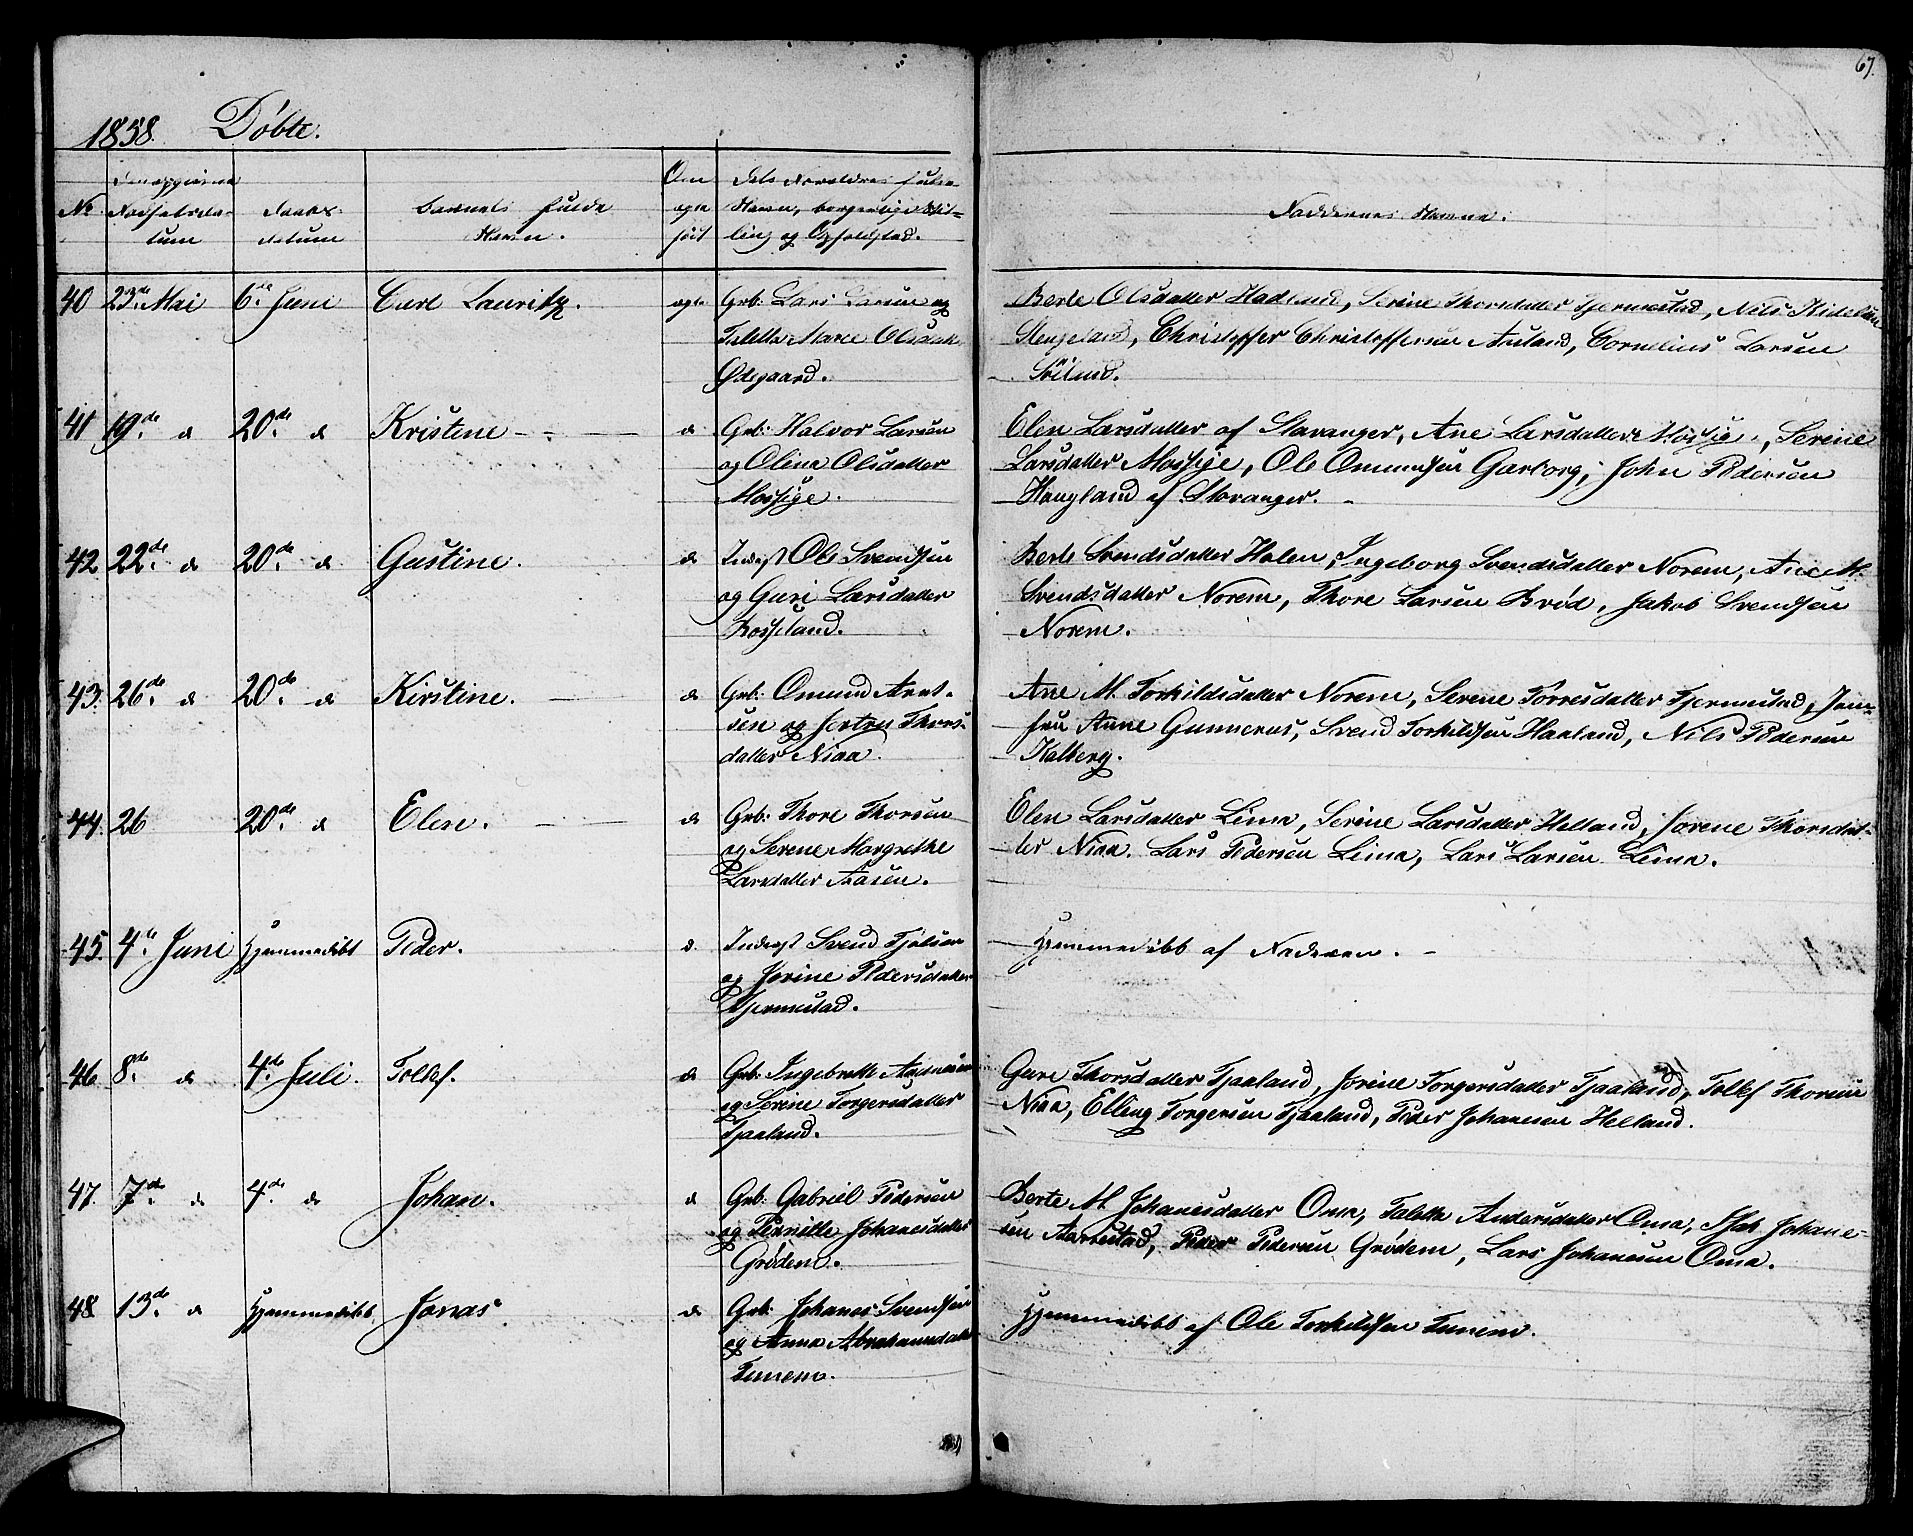 67.
1858. Døbte.
No
Den opgivne Fødselsda- tum
Daabs- datum
Barnets fulde Navn.
Om ægte født
Dets Forældres fulde Navn, borgerlige Stil- ling og Opholdsted.
Faddernes Navne.
40 23de Mai 6te Juni Carl Lauritz. ægte Grb: Lars Larsen og
Talette Marie Olsdatt.
Ødegaard.
Berte Olsdatter Hadland, Serine Thorsdatter Tjermestad, Nils
Stengeland, Christoffer Christoffersen Auland, Cornelius Larsen
41 19de d 20de d Kristine d Grb: Halvor Larsen
og Olina Olsdatter
Mossige.
Elen Larsdatter af Stavanger, Ane Larsdatter Mossige, Serine
Larsdatter Mossige, Ole Omundsen Garborg, John Pedersen
Haugland af Stavanger.
42 22de d 20de d Gustine. d Inderst Ole Svendsen
og Guri Larsdatter
Rosseland.
Berte Svendsdatter Holen, Ingeborg Svendsdatter Norem, Ane M.
Svendsdatter Norem, Thore Larsen Brød, Jakob Svendsen
Norem.
43. 26de d 20de d Kirstine. d Grb: Omund Arnt-
sen og Jertru Thors-
datter Niaa.
Ane M. Torkildsdatter Norem, Serene Torresdatter Tjermestad, Jom-
fru Anne Gunnerus, Svend Torkildsen Haaland, Nils Pedersen
Kalberg.
44. 26 20de d Elen. d Grb: Thore Thorsen
og Serene Margrethe
Larsdatter Aasen.
Elen Larsdatter Lima, Serine Larsdatter Helland, Jorene Thorsdat-
ter Niaa. Lars Pedersen Lima, Lars Larsen Lima.
45. 4de Juni Hjemmedøbt Peder. d. Inderst Svend Tjølsen
og Jorine Pedersdatter
Tjermestad.
Hjemmedøbt af Faderen.
46 8de d 4de Juli. Tollef. d Grb: Ingebreth
og Serine Torgersdatter
Tjaaland.
Guri Thorsdatter Tjaaland, Jorine Torgersdatter Tjaaland, Tollef Thorsen
Niaa, Elling Torgersen Tjaaland, Peder Johannesen Helland.
47. 7de d 4de d Johan. d Grb: Gabriel Pedersen
og Pernille Johanesdatter
Grødem.
Berte M. Johanesdatter Oma, Talette Andersdatter Oma, Johane-
sen Aarrestad, Peder Pedersen Grødem, Lars Johanesen Oma.
48 13de d Hjemmedøbt Jonas d Grb: Johanes Svendsen
og Anna Abrahamsdatter
Tunem.
Hjemmedøbt af Ole Torkildsen Tunem.